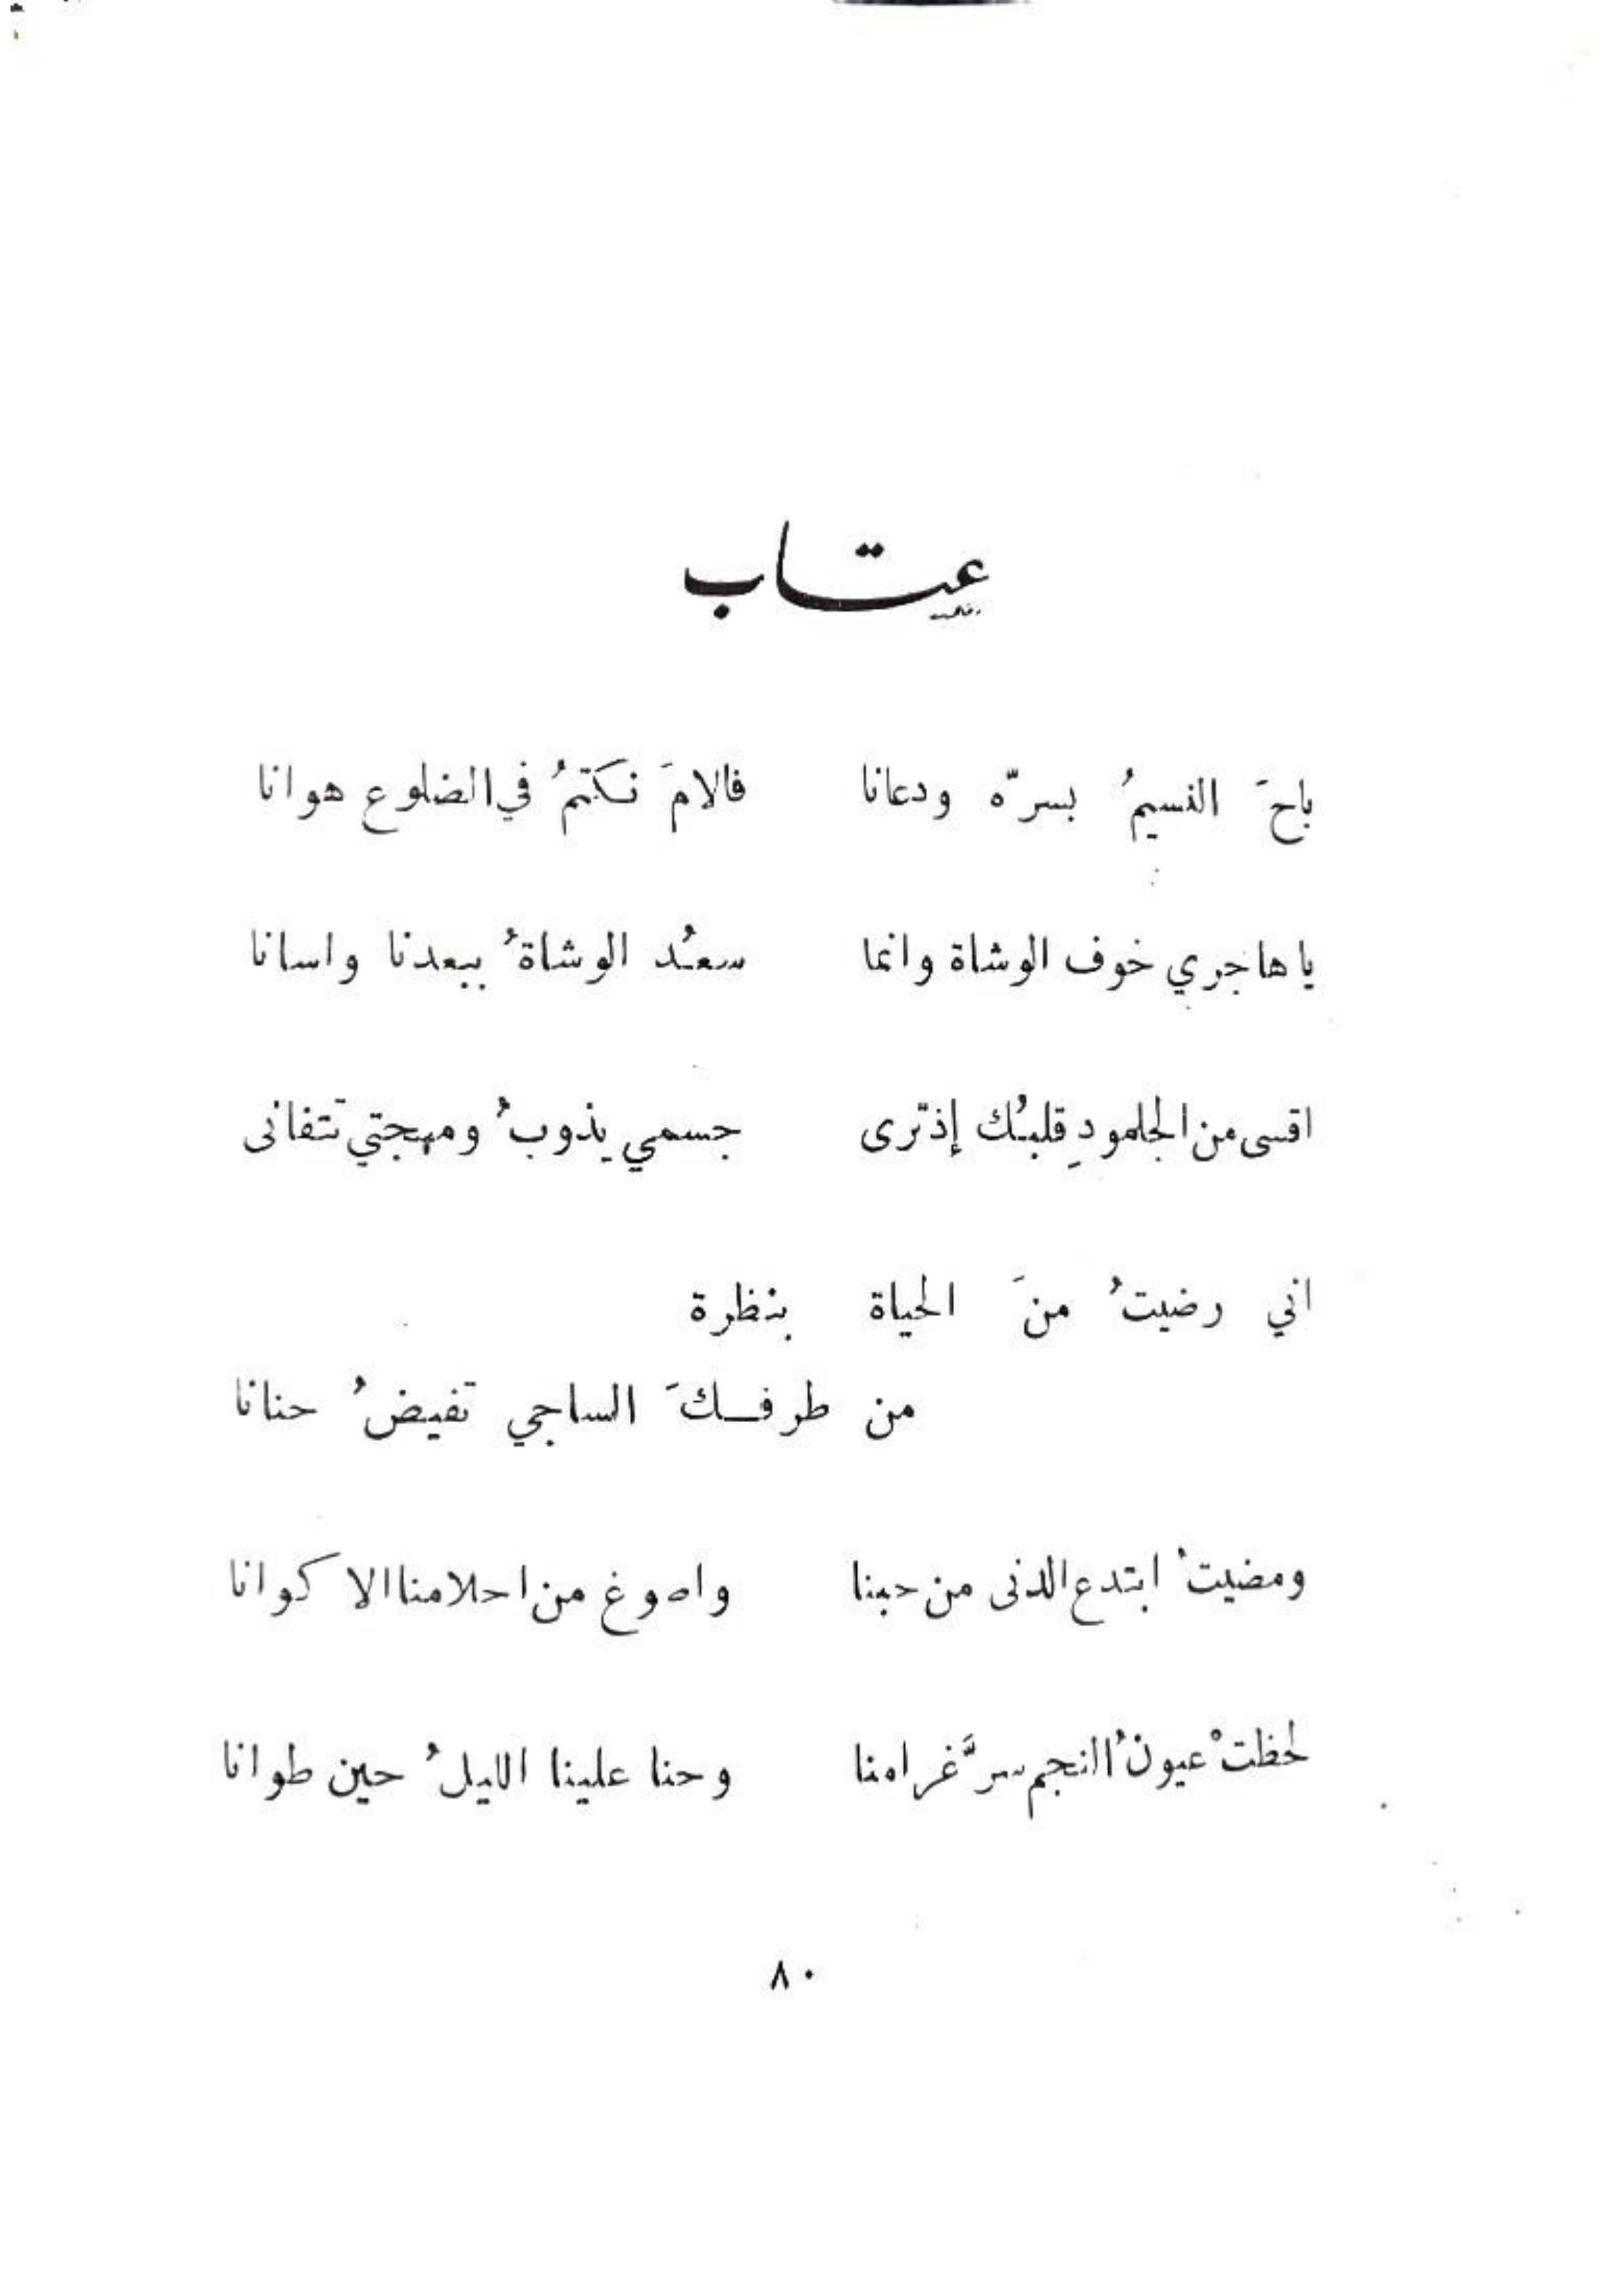 عتاب
باحَ النسيمُ بسرّه ودعانا فالامَ نكتمُ في الضلوع هوانا
يا هاجري خوف الوشاة وانما سعُد الوشاةُ ببعدنا واسانا
اقسى من الجلمودِ قلبُك إذ ترى جسمي يذوبُ ومهجتي تتفانى
اني رضيتُ منَ الحياة بنظرة
من طرفكَ الساجي تفيضُ حنانا
ومضيتُ ابتدع الدنى من حبنا واصوغ من احلامنا الاكوانا
لحظتْ عيونُ النجم سرَّ غرامنا وحنا علينا الليلُ حين طوانا
٨٠